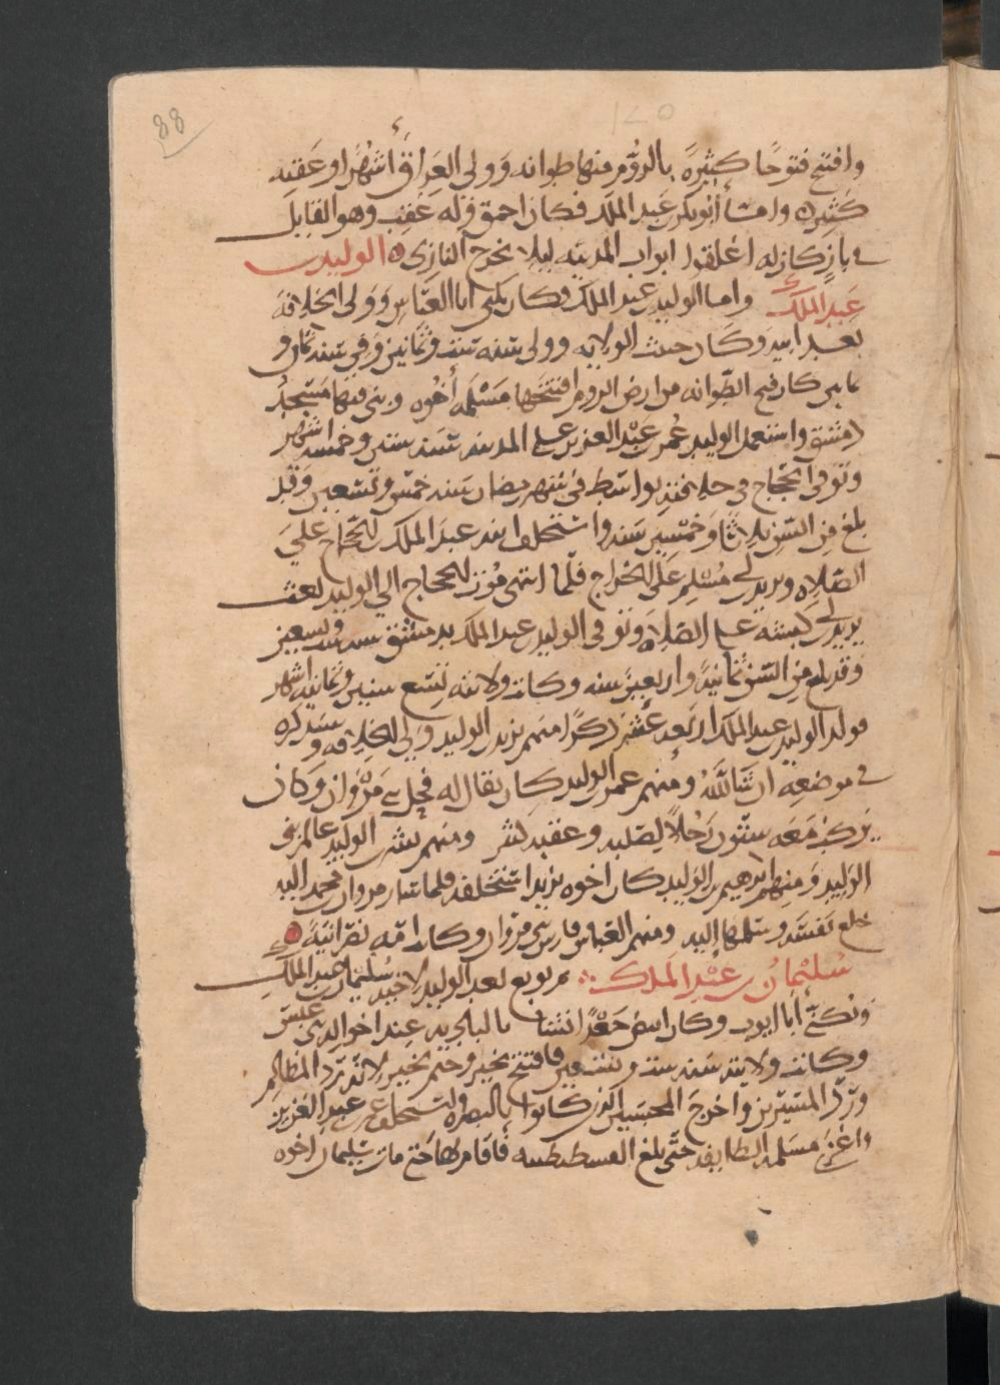 88
وافتتح فتوحًا كثيرةً بالرُّوم منها طوانه وَولى العِرَاق أشهُرًا وعَقبه
كثيره وامّا أبو بكر بن عَبد الملك فكان احمق وَله عَقِب وهو القايل
في بازٍ كان له اغلقوا ابواب المدينه ليلا يخرج البازى ه الوليد بن
عَبد الملك واما الوليد بن عبد الملك فكان يكنى ابا العبّاس وَولى الخِلافة
بعد ابيه وكان حسن الولايه وولى سنه ست وثمانين وفى سنه ثمان و
ثمانين كان فتح الطوانه من ارض الروم افتتحها مَسْلمه أخُوه وبنى فيها مَسْجدُ
دمشق واستعمل الوليد عُمر بن عَبْد العزيز على المدينه سنه ست وخمسه اشهر
وتوفى الحجّاج فى خلافته بواسط فى شهر رمضان سنه خمس وتسعين وَقد
بلغ من السّن ثلاثًا وَخمْسين سَنه واستخلف ابنه عبد الملك بن الحجّاج علىَ
الصّلاه ويزيد بن ابى مُسْلم عَلى الخراج فلمّا انتهى مَوْت الحجاج الى الوليد بعث
يزيد بن ابى كبشه على الصّلاه وتوفى الوليد بن عبد الملك بدمشق سنه ست وتسعين
وقد بلغ من السّن ثمانيًة واربعين سنه وكانت ولايته تِسْع سنين وثمانيه اشهر
فولد الوليد بن عبد الملك اربعه عَشَر ذكرًا منهم يزيد بن الوليد وَلى الخلافه و سنذكره
فى موضعِه ان شَا اللَّهُ ومنهم عمر بن الوليد كان يقال له فحل بنى مَرْوان وَكان
يركب مَعَه ستّون رَجُلاً لصُلبه وعقبه كثير ومنهم بشر بن الوليد عالم بنى
الوَليد وَمنهم ابرهيم بن الوَليد كان اخوه يزيد استخلفه فلما سَار مروان بن محمد اليه
خلع نَفسَه وسلمها اليه ومنهم العبّاس فارس بنى مَرْوان وكانت امّه نصرَانيّة
سُليْمان بن عبْد الملك ثم بويع بعد الوليد لاخيه سُليمان بن عبد الملك
وَيُكنىّ أبا ايوب وكان ابيض جَعْدًا نشَأ بالباديه عِند اخواله بنى عبْس
وكانت ولايته سَنه ست وتسعين فافتتح بخير وختم بخير لانّه ردّ المظالم
وردّ المسيّرين واخرجَ المحبّسين الذين كانوا بالبصره واستخلف عمر بن عبد العزيز
واغزى مسلمه الصّايفه حتّى بلغ القسطنطينيه فأقام بها حتىّ مات سُليمان اخوه